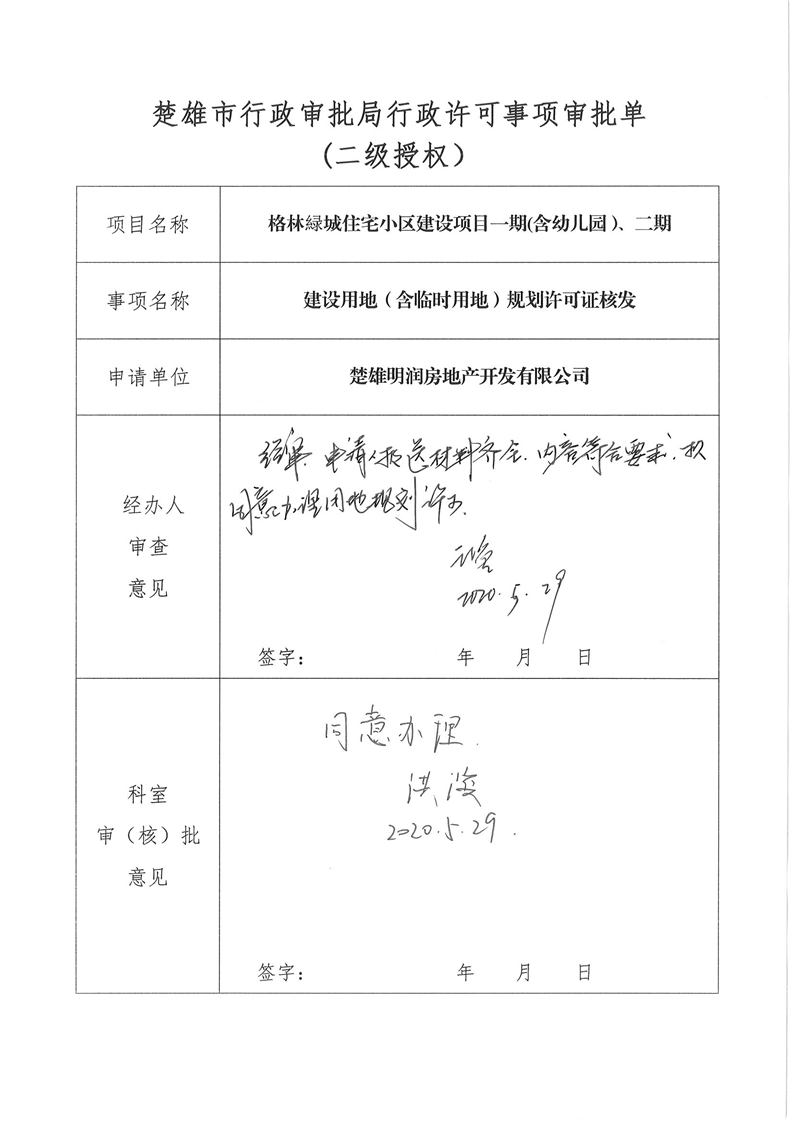 楚雄市行政审批局行政许可事项审批单
(二级授权)
项目名称
格林緑城住宅小区建设项目一期(含幼儿园)、二期
事项名称
建设用地(含临时用地)规划许可证核发
申请单位
楚雄明润房地产开发有限公司
经办人
审查
意见
经审,申请人报送材料齐全,内容符合要求,拟
同意办理用地规划许可。
2020.5.29
签字: 年 月 日
科室
审(核)批
意见
同意办理.
洪滨
2020.5.29.
签字: 年 月 日